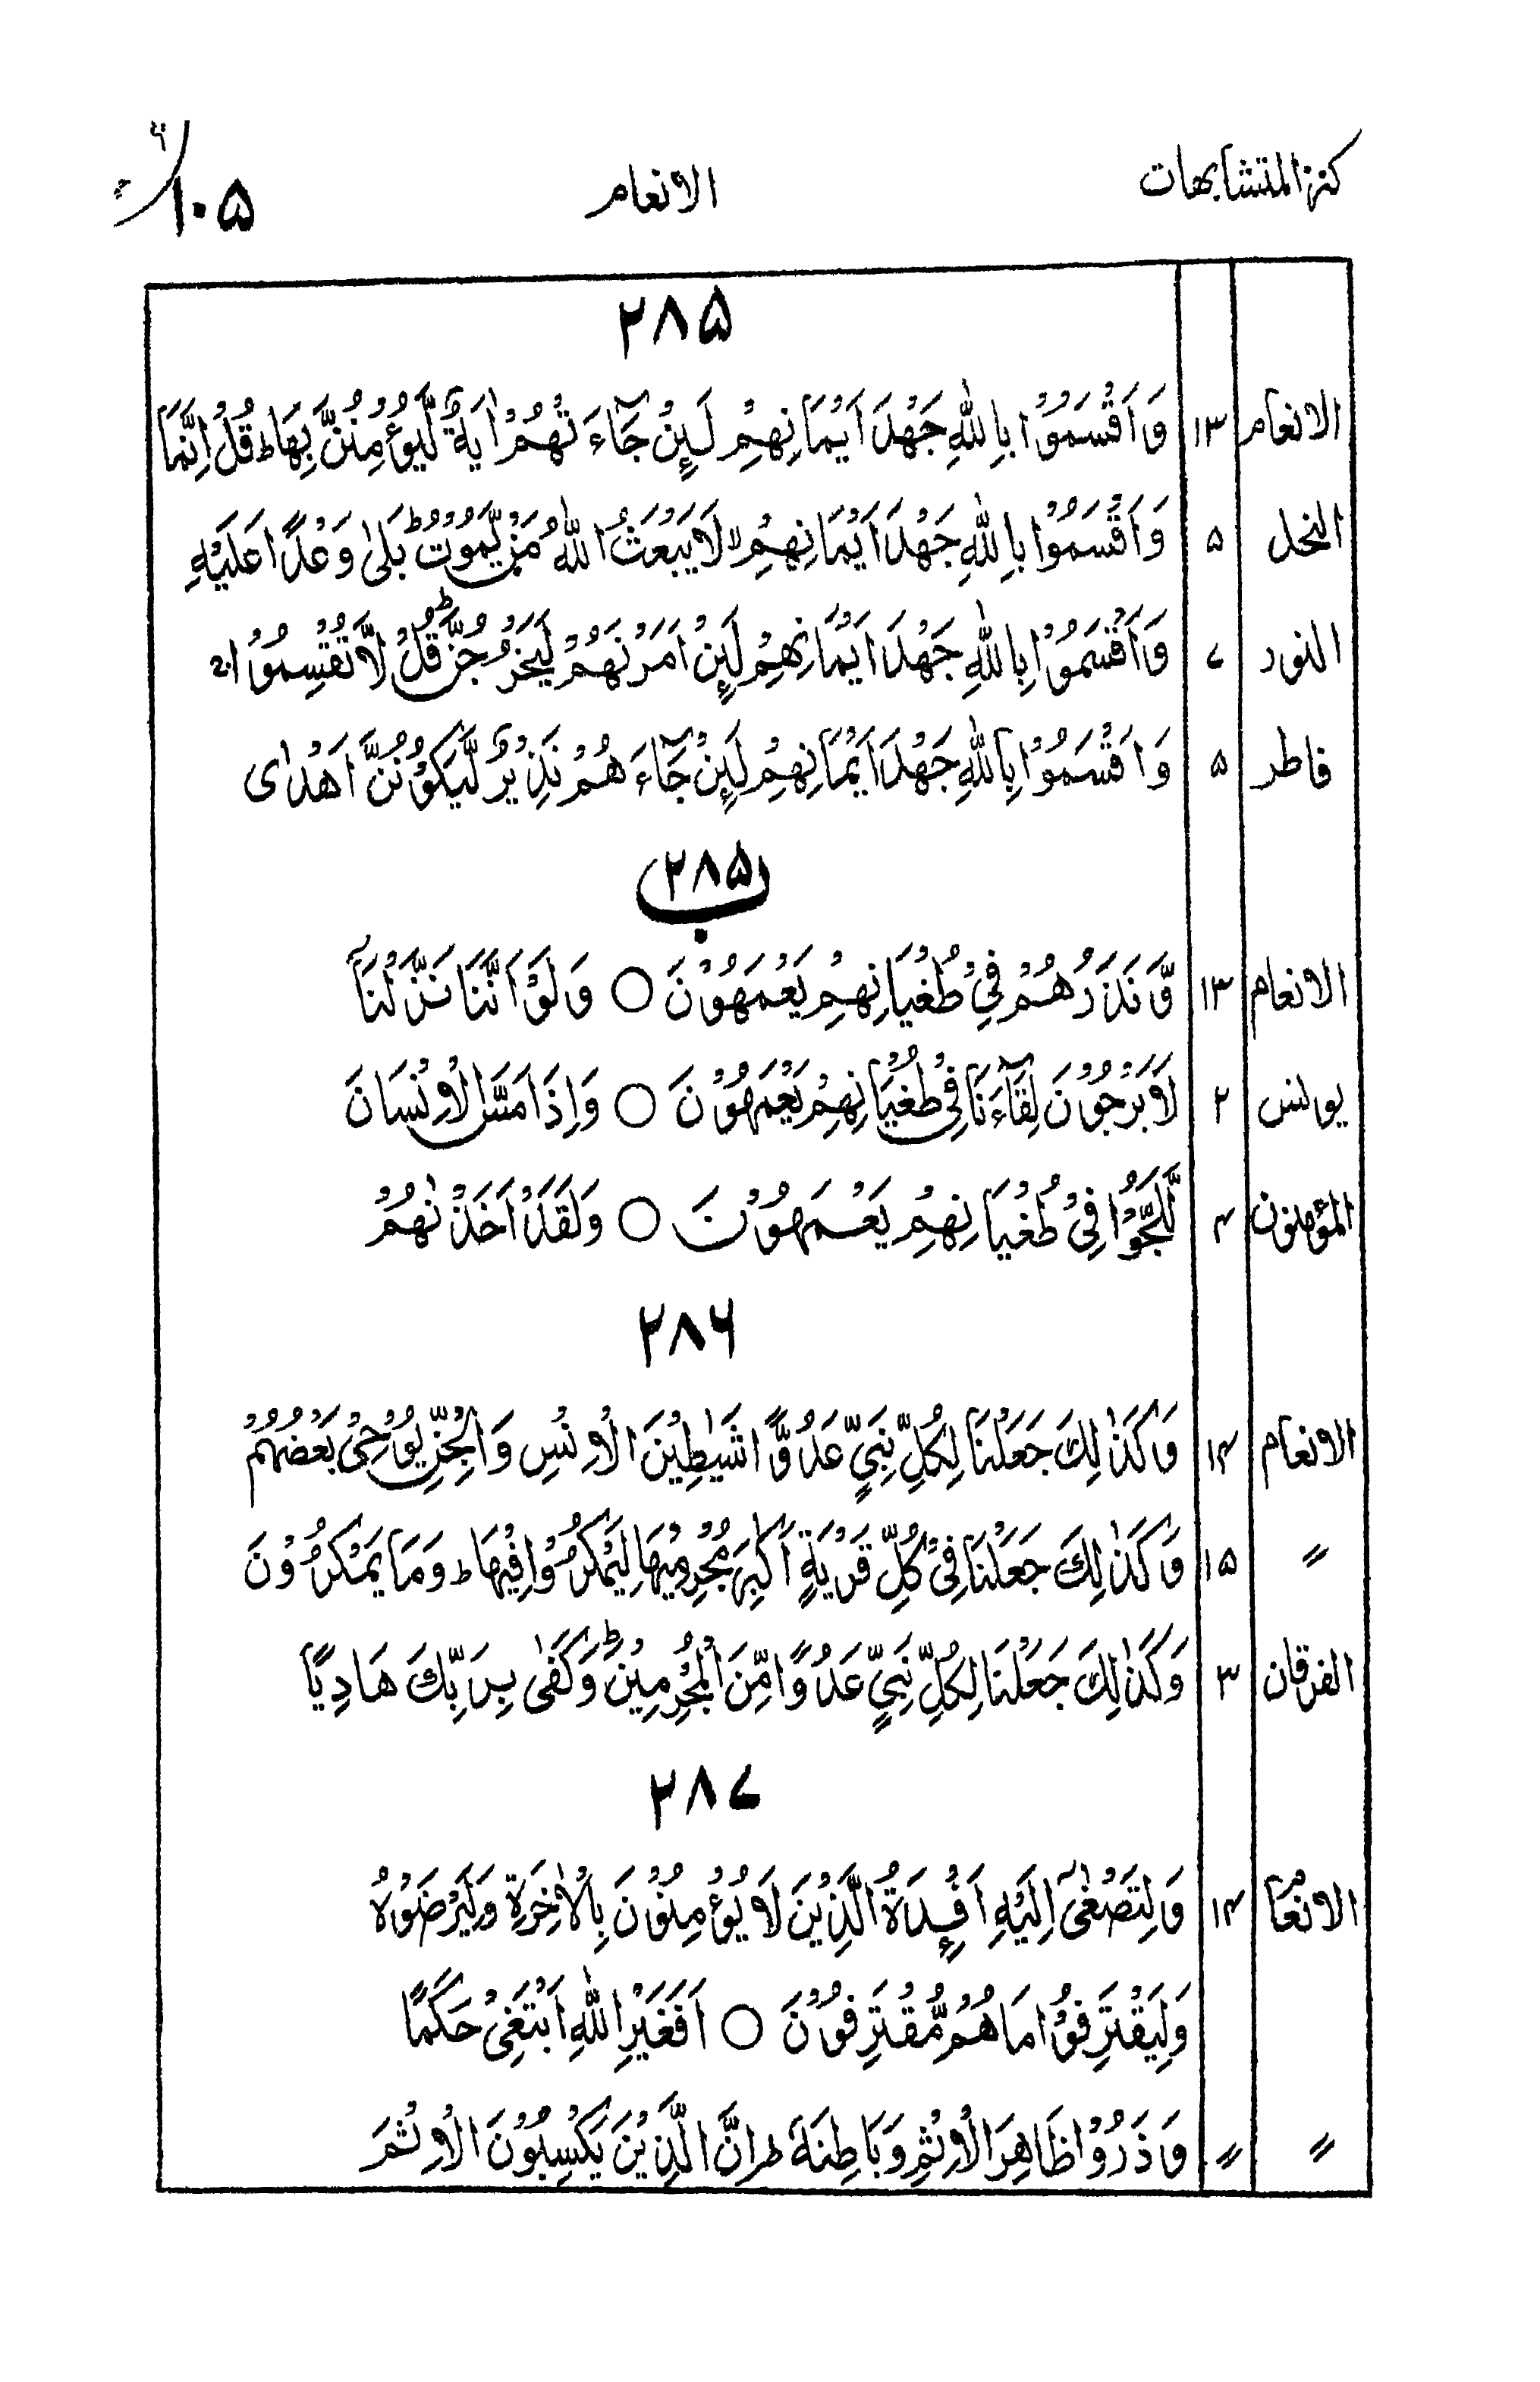 كنز المتشابهات الانعام ۱۰۵
۲۸۵
الانعام ۱۳ وَاَقْسَمُوْا بِاللّٰهِ جَهْدَ اَيْمَانِهِمْ لَىِٕنْ جَآءَتْهُمْ اٰيَةٌ لَّيُؤْمِنُنَّ بِهَا ؕ قُلْ اِنَّمَا
النحل ۵ وَاَقْسَمُوْا بِاللّٰهِ جَهْدَ اَيْمَانِهِمْ ۙ لَا يَبْعَثُ اللّٰهُ مَنْ يَّمُوْتُ ؕ بَلٰى وَعْدًا عَلَيْهِ
النور ۷ وَاَقْسَمُوْا بِاللّٰهِ جَهْدَ اَيْمَانِهِمْ لَىِٕنْ اَمَرْتَهُمْ لَيَخْرُجُنَّ ؕ قُلْ لَّا تُقْسِمُوْا ۚ
فاطر ۵ وَاَقْسَمُوْا بِاللّٰهِ جَهْدَ اَيْمَانِهِمْ لَىِٕنْ جَآءَهُمْ نَذِيْرٌ لَّيَكُوْنُنَّ اَهْدٰى
۲۸۵ ب
الانعام ۱۳ وَّنَذَرُهُمْ فِيْ طُغْيَانِهِمْ يَعْمَهُوْنَ ○ وَلَوْ اَنَّنَا نَزَّلْنَآ
يونس ۲ لَا يَرْجُوْنَ لِقَآءَنَا فِيْ طُغْيَانِهِمْ يَعْمَهُوْنَ ○ وَاِذَا مَسَّ الْاِنْسَانَ
المؤمنون ۴ لَّلَجُّوْا فِيْ طُغْيَانِهِمْ يَعْمَهُوْنَ ○ وَلَقَدْ اَخَذْنٰهُمْ
۲۸۶
الانعام ۱۴ وَكَذٰلِكَ جَعَلْنَا لِكُلِّ نَبِيٍّ عَدُوًّا شَيٰطِيْنَ الْاِنْسِ وَالْجِنِّ يُوْحِيْ بَعْضُهُمْ
〃 ۱۵ وَكَذٰلِكَ جَعَلْنَا فِيْ كُلِّ قَرْيَةٍ اَكٰبِرَ مُجْرِمِيْهَا لِيَمْكُرُوْا فِيْهَا ؕ وَمَا يَمْكُرُوْنَ
الفرقان ۳ وَكَذٰلِكَ جَعَلْنَا لِكُلِّ نَبِيٍّ عَدُوًّا مِّنَ الْمُجْرِمِيْنَ ؕ وَكَفٰى بِرَبِّكَ هَادِيًا
۲۸۷
الانعام ۱۴ وَلِتَصْغٰٓى اِلَيْهِ اَفْـِٕدَةُ الَّذِيْنَ لَا يُؤْمِنُوْنَ بِالْاٰخِرَةِ وَلِيَرْضَوْهُ
وَلِيَقْتَرِفُوْا مَا هُمْ مُّقْتَرِفُوْنَ ○ اَفَغَيْرَ اللّٰهِ اَبْتَغِيْ حَكَمًا
〃 〃 وَذَرُوْا ظَاهِرَ الْاِثْمِ وَبَاطِنَهٗ ؕ اِنَّ الَّذِيْنَ يَكْسِبُوْنَ الْاِثْمَ